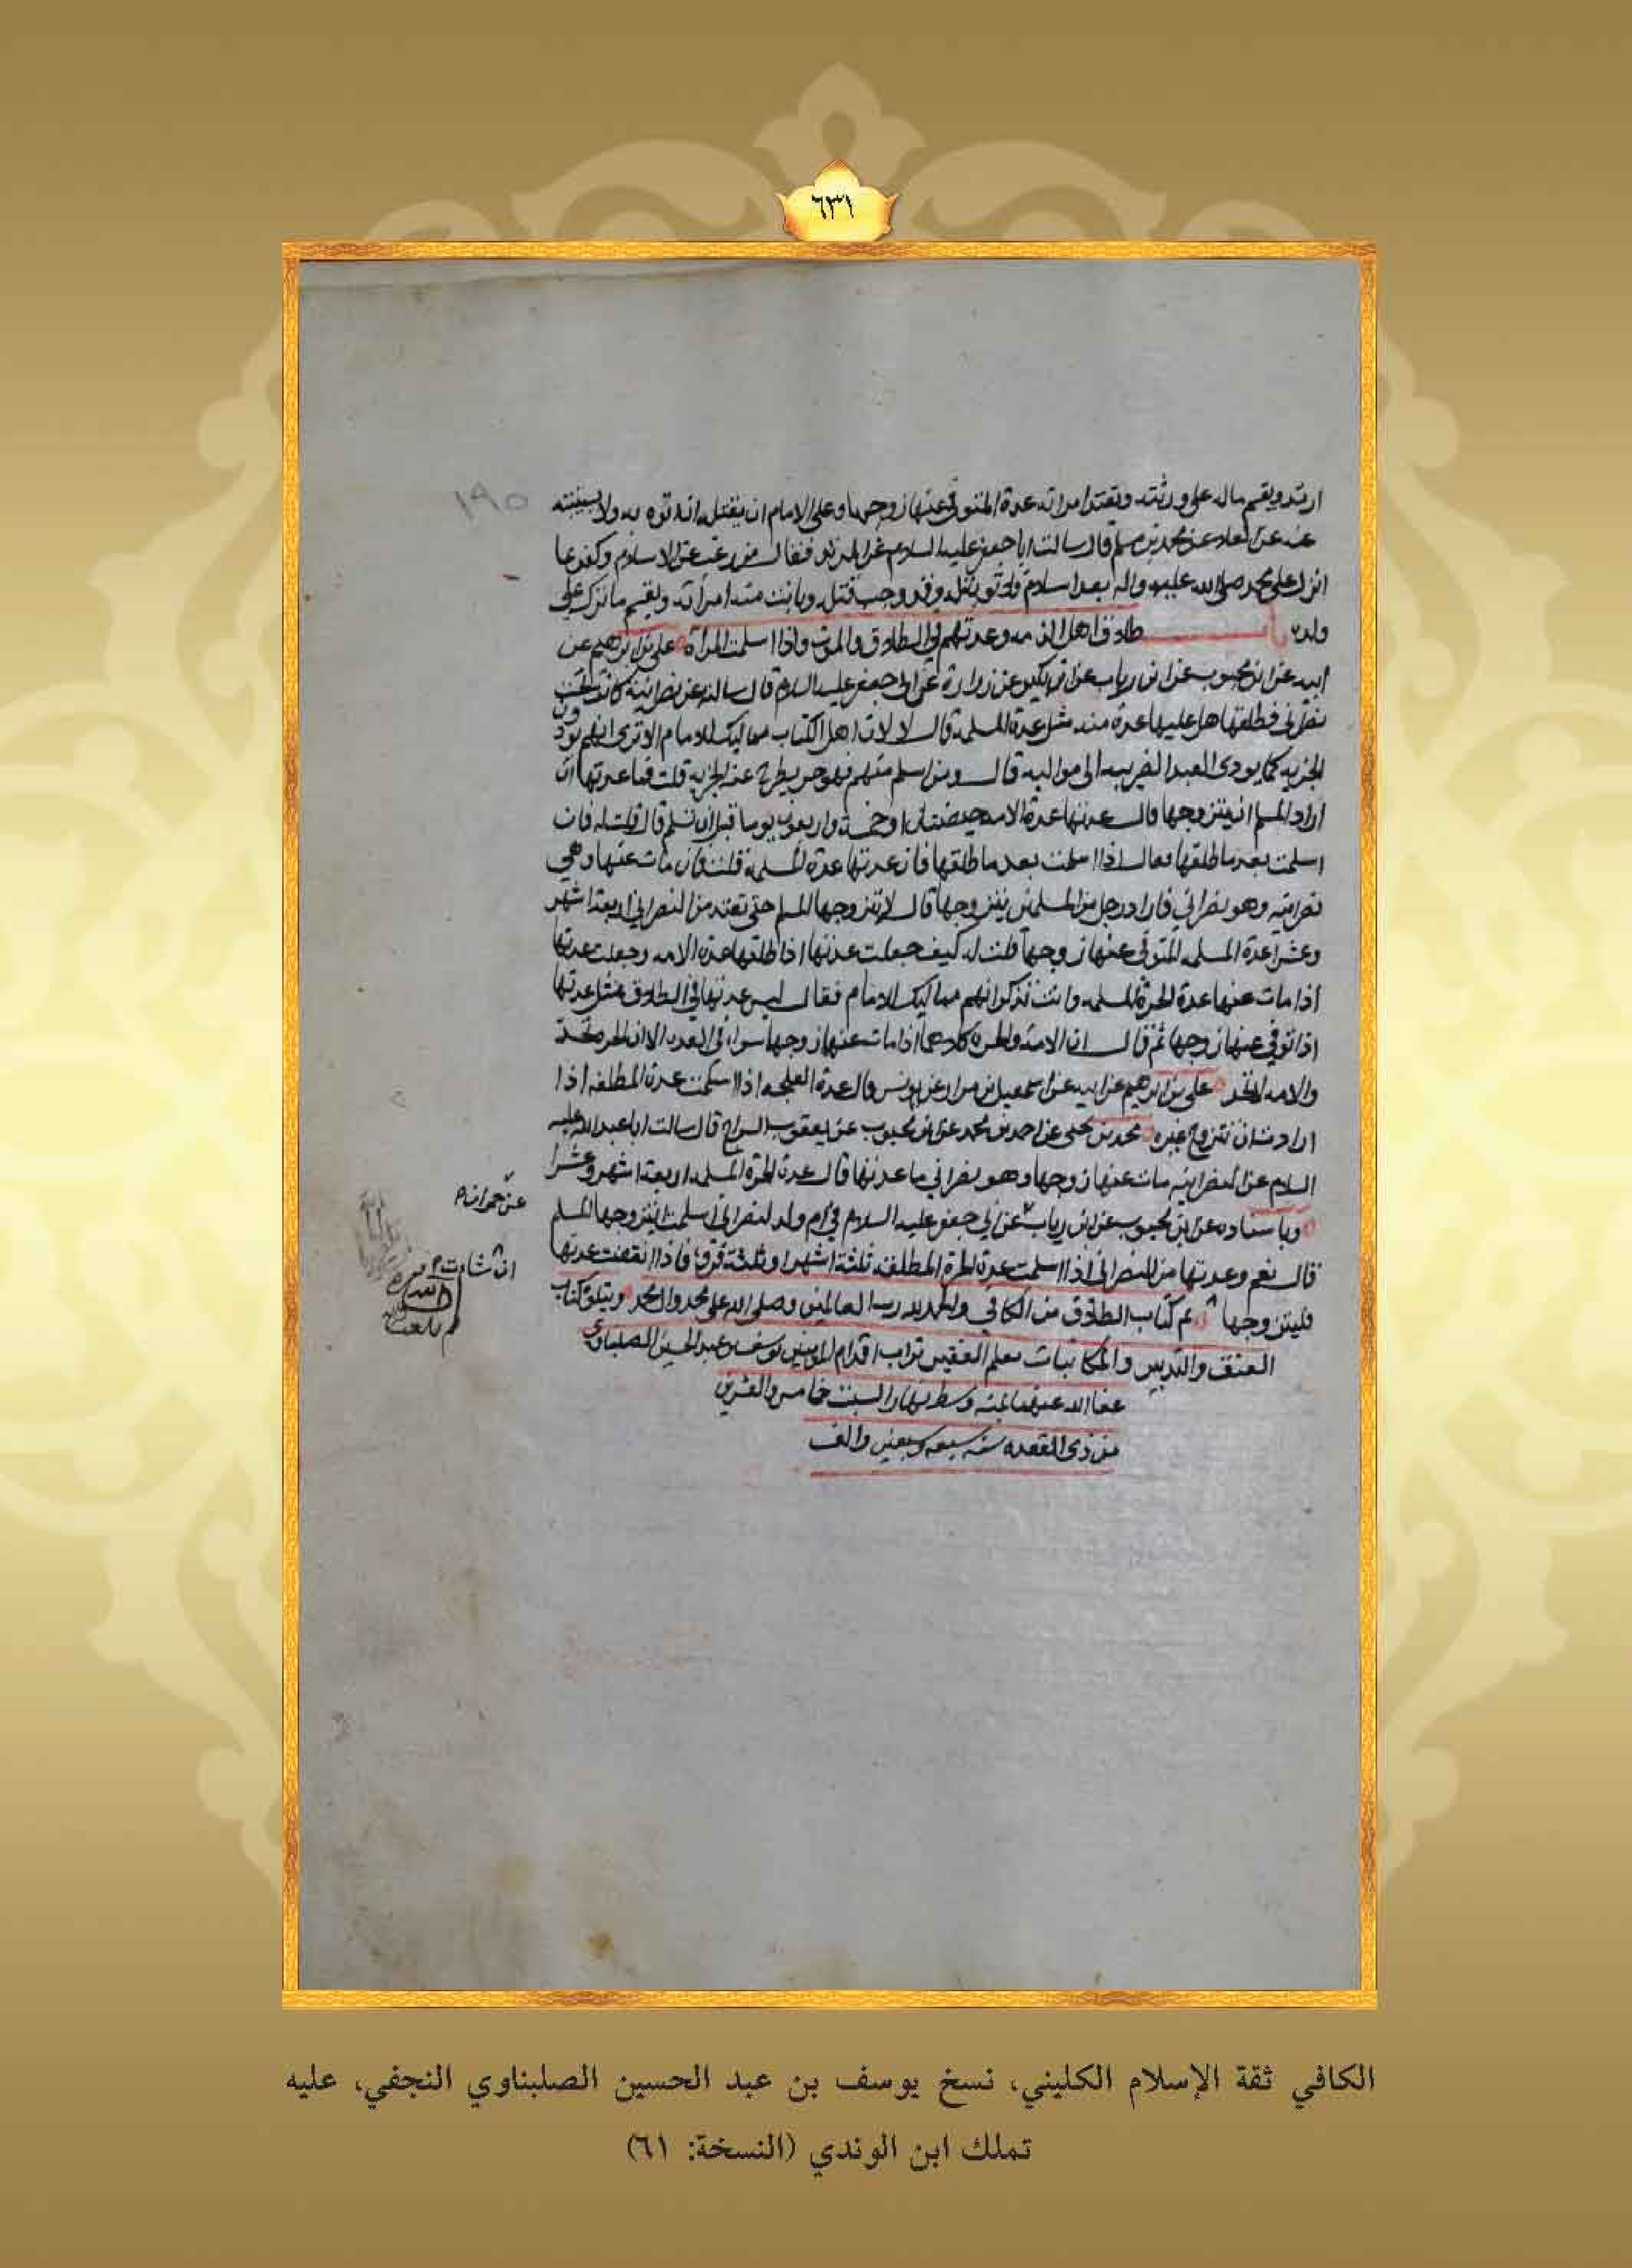 ٦٣١
١٩٥
ارتد ويقسم ماله على ورثته وتعتد امراته عدة المتوفى عنها زوجها وعلى الامام ان يقتله ان اتوه به ولا يستتيبه
عنه عن العلاء عن محمد بن مسلم قال سالت ابا جعفر عليه السلام عن المرتد فقال من رغب عن الاسلام وكفر بما
انزل على محمد صلى الله عليه واله بعد اسلامه فلا توبة له وقد وجب قتله وبانت منه امراته ويقسم ما ترك على
ولده باب طلاق اهل الذمه وعدتهم في الطلاق والموت واذا اسلمت المراة على بن ابرهيم عن
ابيه عن ابن محبوب عن ابن رياب عن ابن بكير عن زرارة عن ابى جعفر عليه السلام قال سالته عن نصرانية كانت تحت
نصراني فطلقها هل عليها عدة منه مثل عدة المسلمة قال لا لان اهل الكتاب مماليك للامام الا ترى انهم يودون
الجزيه كما يودى العبد الضريبه الى مواليه قال ومن اسلم منهم فهو حر يطرح عنه الجزيه قلت فما عدتها ان
اراد المسلم ان يتزوجها قال عدتها عدة الامه حيضتان او خمسة واربعون يوما قبل ان تسلم قال قلت له فان
اسلمت بعد ما طلقها فقال اذا اسلمت بعد ما طلقها فان عدتها عدة المسلمه قلت فان مات عنها وهى
نصرانيه وهو نصراني فاراد رجل من المسلمين يتزوجها قال لا يتزوجها المسلم حتى تعتد من النصراني اربعة اشهر
وعشرا عدة المسلمه المتوفى عنها زوجها قلت له كيف جعلت عدتها اذا طلقها عدة الامه وجعلت عدتها
اذا مات عنها عدة الحرة المسلمه وانت تذكر انهم مماليك للامام فقال ليس عدتها في الطلاق مثل عدتها
اذا توفى عنها زوجها ثم قال ان الامة والحره كلاهما اذا مات عنها زوجها سواء في العده الا ان الحره تحد
والامه لا تحد على بن ابرهيم عن ابيه عن اسمعيل بن مرار عن يونس قال عدة العلجه اذا اسلمت عدة المطلقه اذا
ارادت ان تتزوج غيره محمد بن يحيى عن احمد بن محمد عن ابن محبوب عن يعقوب السراج قال سالت ابا عبد الله عليه
السلام عن نصرانيه مات عنها زوجها وهو نصراني ما عدتها قال عدة الحرة المسلمه اربعة اشهر وعشرا
وباسناده عن ابن محبوب عن ابن رياب عن ابي جعفر عليه السلام في ام ولد لنصراني اسلمت ايتزوجها المسلم
عن حمران
قال نعم وعدتها من النصراني اذا اسلمت عدة الحرة المطلقه ثلثة اشهر او ثلثة قروء فاذا انقضت عدتها
ان شات
فليتزوجها تم كتاب الطلاق من الكافي والحمد لله رب العالمين وصلى الله على محمد وال محمد ويتلوه كتاب
العتق والتدبير والمكاتبات بقلم الفقير تراب اقدام المومنين يوسف بن عبد الحسين الصلبناوي
عفا الله عنهما بمنه وسط نهار السبت خامس والعشرين
من ذى القعده سنه سبعه وسبعين والف
الكافي ثقة الإسلام الكليني، نسخ يوسف بن عبد الحسين الصلبناوي النجفي، عليه
تملك ابن الوندي (النسخة: ٦١)